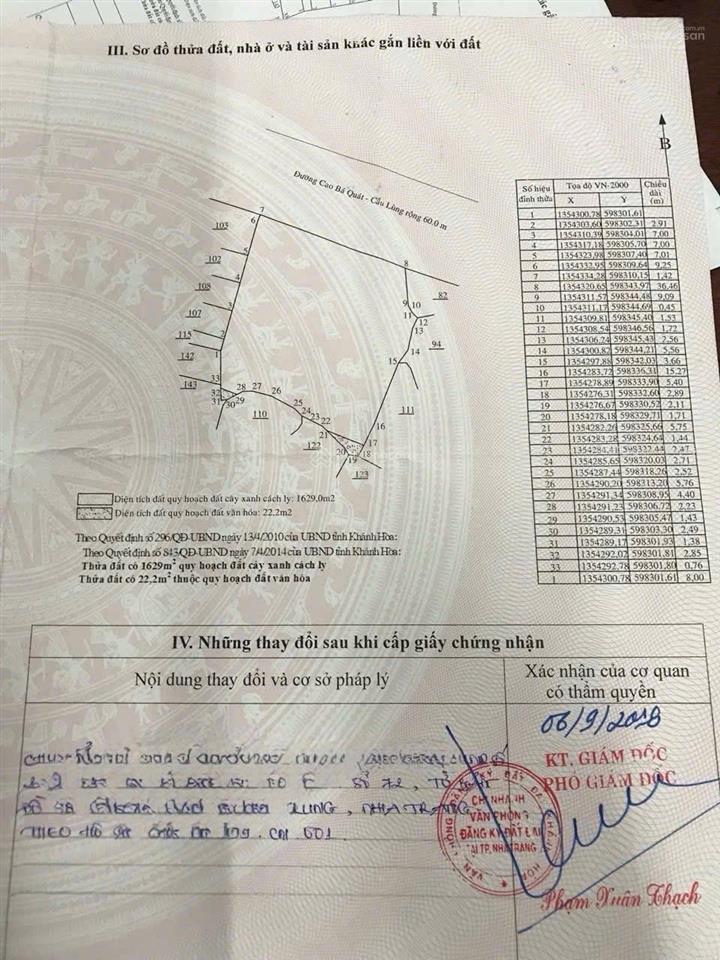 III. Sơ đồ thửa đất, nhà ở và tài sản khác gắn liền với đất
B
Đường Cao Bá Quát - Cầu Lùng rộng 60.0 m
7
6
103
5
102
4
108
3
107
2
115
1
142
33
143
32
31
30
29
28
27
26
110
25
24
23
22
21
122
20
19
18
123
17
16
111
15
14
94
13
12
11
10
9
82
8
Số hiệu đỉnh thửa
Tọa độ VN-2000
Chiều dài (m)
X Y
1 1354300,78 598301,61
2 1354303,60 598302,31 2,91
3 1354310,39 598304,01 7,00
4 1354317,18 598305,70 7,00
5 1354323,98 598307,40 7,01
6 1354332,95 598309,64 9,25
7 1354334,28 598310,15 1,42
8 1354320,65 598343,97 36,46
9 1354311,57 598344,48 9,09
10 1354311,17 598344,69 0,45
11 1354309,81 598345,40 1,53
12 1354308,54 598346,56 1,72
13 1354306,24 598345,43 2,56
14 1354300,82 598344,21 5,56
15 1354297,88 598342,03 3,66
16 1354283,72 598336,31 15,27
17 1354278,89 598333,90 5,40
18 1354276,31 598332,60 2,89
19 1354276,67 598330,52 2,11
20 1354278,18 598329,71 1,71
21 1354282,26 598325,66 5,75
22 1354283,28 598324,64 1,44
23 1354284,41 598322,44 2,47
24 1354285,65 598320,03 2,71
25 1354287,44 598318,26 2,52
26 1354290,20 598313,20 5,76
27 1354291,34 598308,95 4,40
28 1354291,23 598306,72 2,23
29 1354290,53 598305,47 1,43
30 1354289,31 598303,30 2,49
31 1354289,17 598301,93 1,38
32 1354292,02 598301,81 2,85
33 1354292,78 598301,80 0,76
1 1354300,78 598301,61 8,00
Diện tích đất quy hoạch đất cây xanh cách ly: 1629,0m2
Diện tích đất quy hoạch đất văn hóa: 22.2m2
Theo Quyết định số 296/QĐ-UBND ngày 13/4/2010 của UBND tỉnh Khánh Hòa:
Theo Quyết định số 843/QĐ-UBND ngày 7/4/2014 của UBND tỉnh Khánh Hòa:
Thửa đất có 1629m² quy hoạch đất cây xanh cách ly
Thửa đất có 22,2m² thuộc quy hoạch đất văn hóa
IV. Những thay đổi sau khi cấp giấy chứng nhận
Nội dung thay đổi và cơ sở pháp lý
Xác nhận của cơ quan có thẩm quyền
06/9/2018
KT. GIÁM ĐỐC
PHÓ GIÁM ĐỐC
NHA TRANG
THEO HỒ SƠ
CHI NHÁNH
VĂN PHÒNG
ĐĂNG KÝ ĐẤT ĐAI
TẠI TP. NHA TRANG
Phạm Xuân Thạch